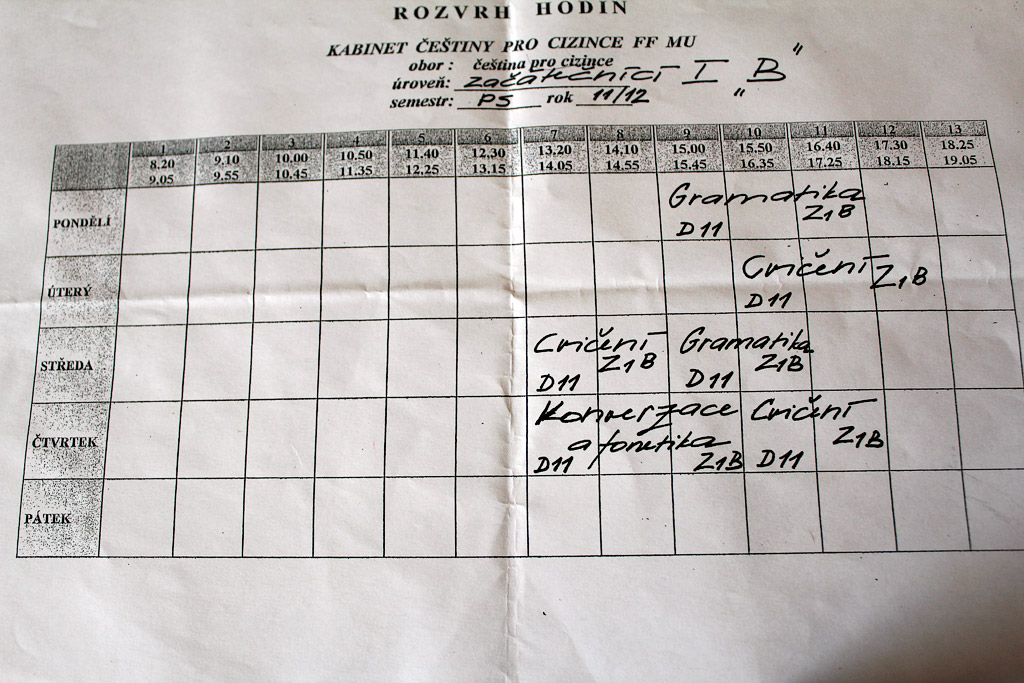 ROZVRH HODIN
KABINET ČEŠTINY PRO CIZINCE FF MU
obor : čeština pro cizince
úroveň: začátečníci I „B"
semestr: PS rok 11/12
1 2 3 4 5 6 7 8 9 10 11 12 13
8.20 9.10 10.00 10.50 11.40 12.30 13.20 14.10 15.00 15.50 16.40 17.30 18.25
9.05 9.55 10.45 11.35 12.25 13.15 14.05 14.55 15.45 16.35 17.25 18.15 19.05
PONDĚLÍ
Gramatika
D11 Z1B
ÚTERÝ
Cvičení
D11 Z1B
STŘEDA
Cvičení Gramatika
D11 Z1B D11 Z1B
ČTVRTEK
Konverzace Cvičení
a fonetika
D11 Z1B D11 Z1B
PÁTEK